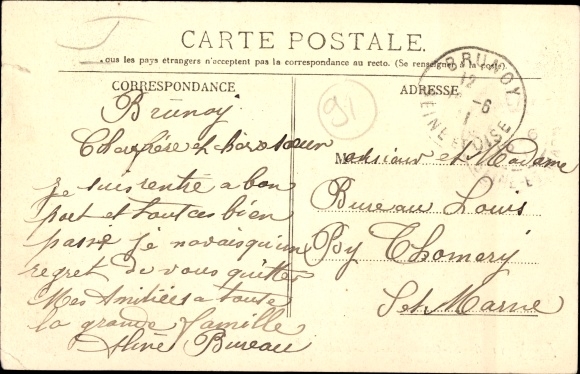 CARTE POSTALE.
Tous les pays étrangers n'acceptent pas la correspondance au recto. (Se renseigner à la poste).
CORRESPONDANCE
ADRESSE
91
BRUNOY
12
-6
SEINE ET OISE
Brunoy
Cher frère et chère sœur
Je suis rentré a bon
port et tout ces bien
passé je navais qu'un
regret de vous quitter
Mes Amitiées a toute
la grande famille
Bureau
Monsieur et Madame
Bureau Louis
By Thomery
S et Marne